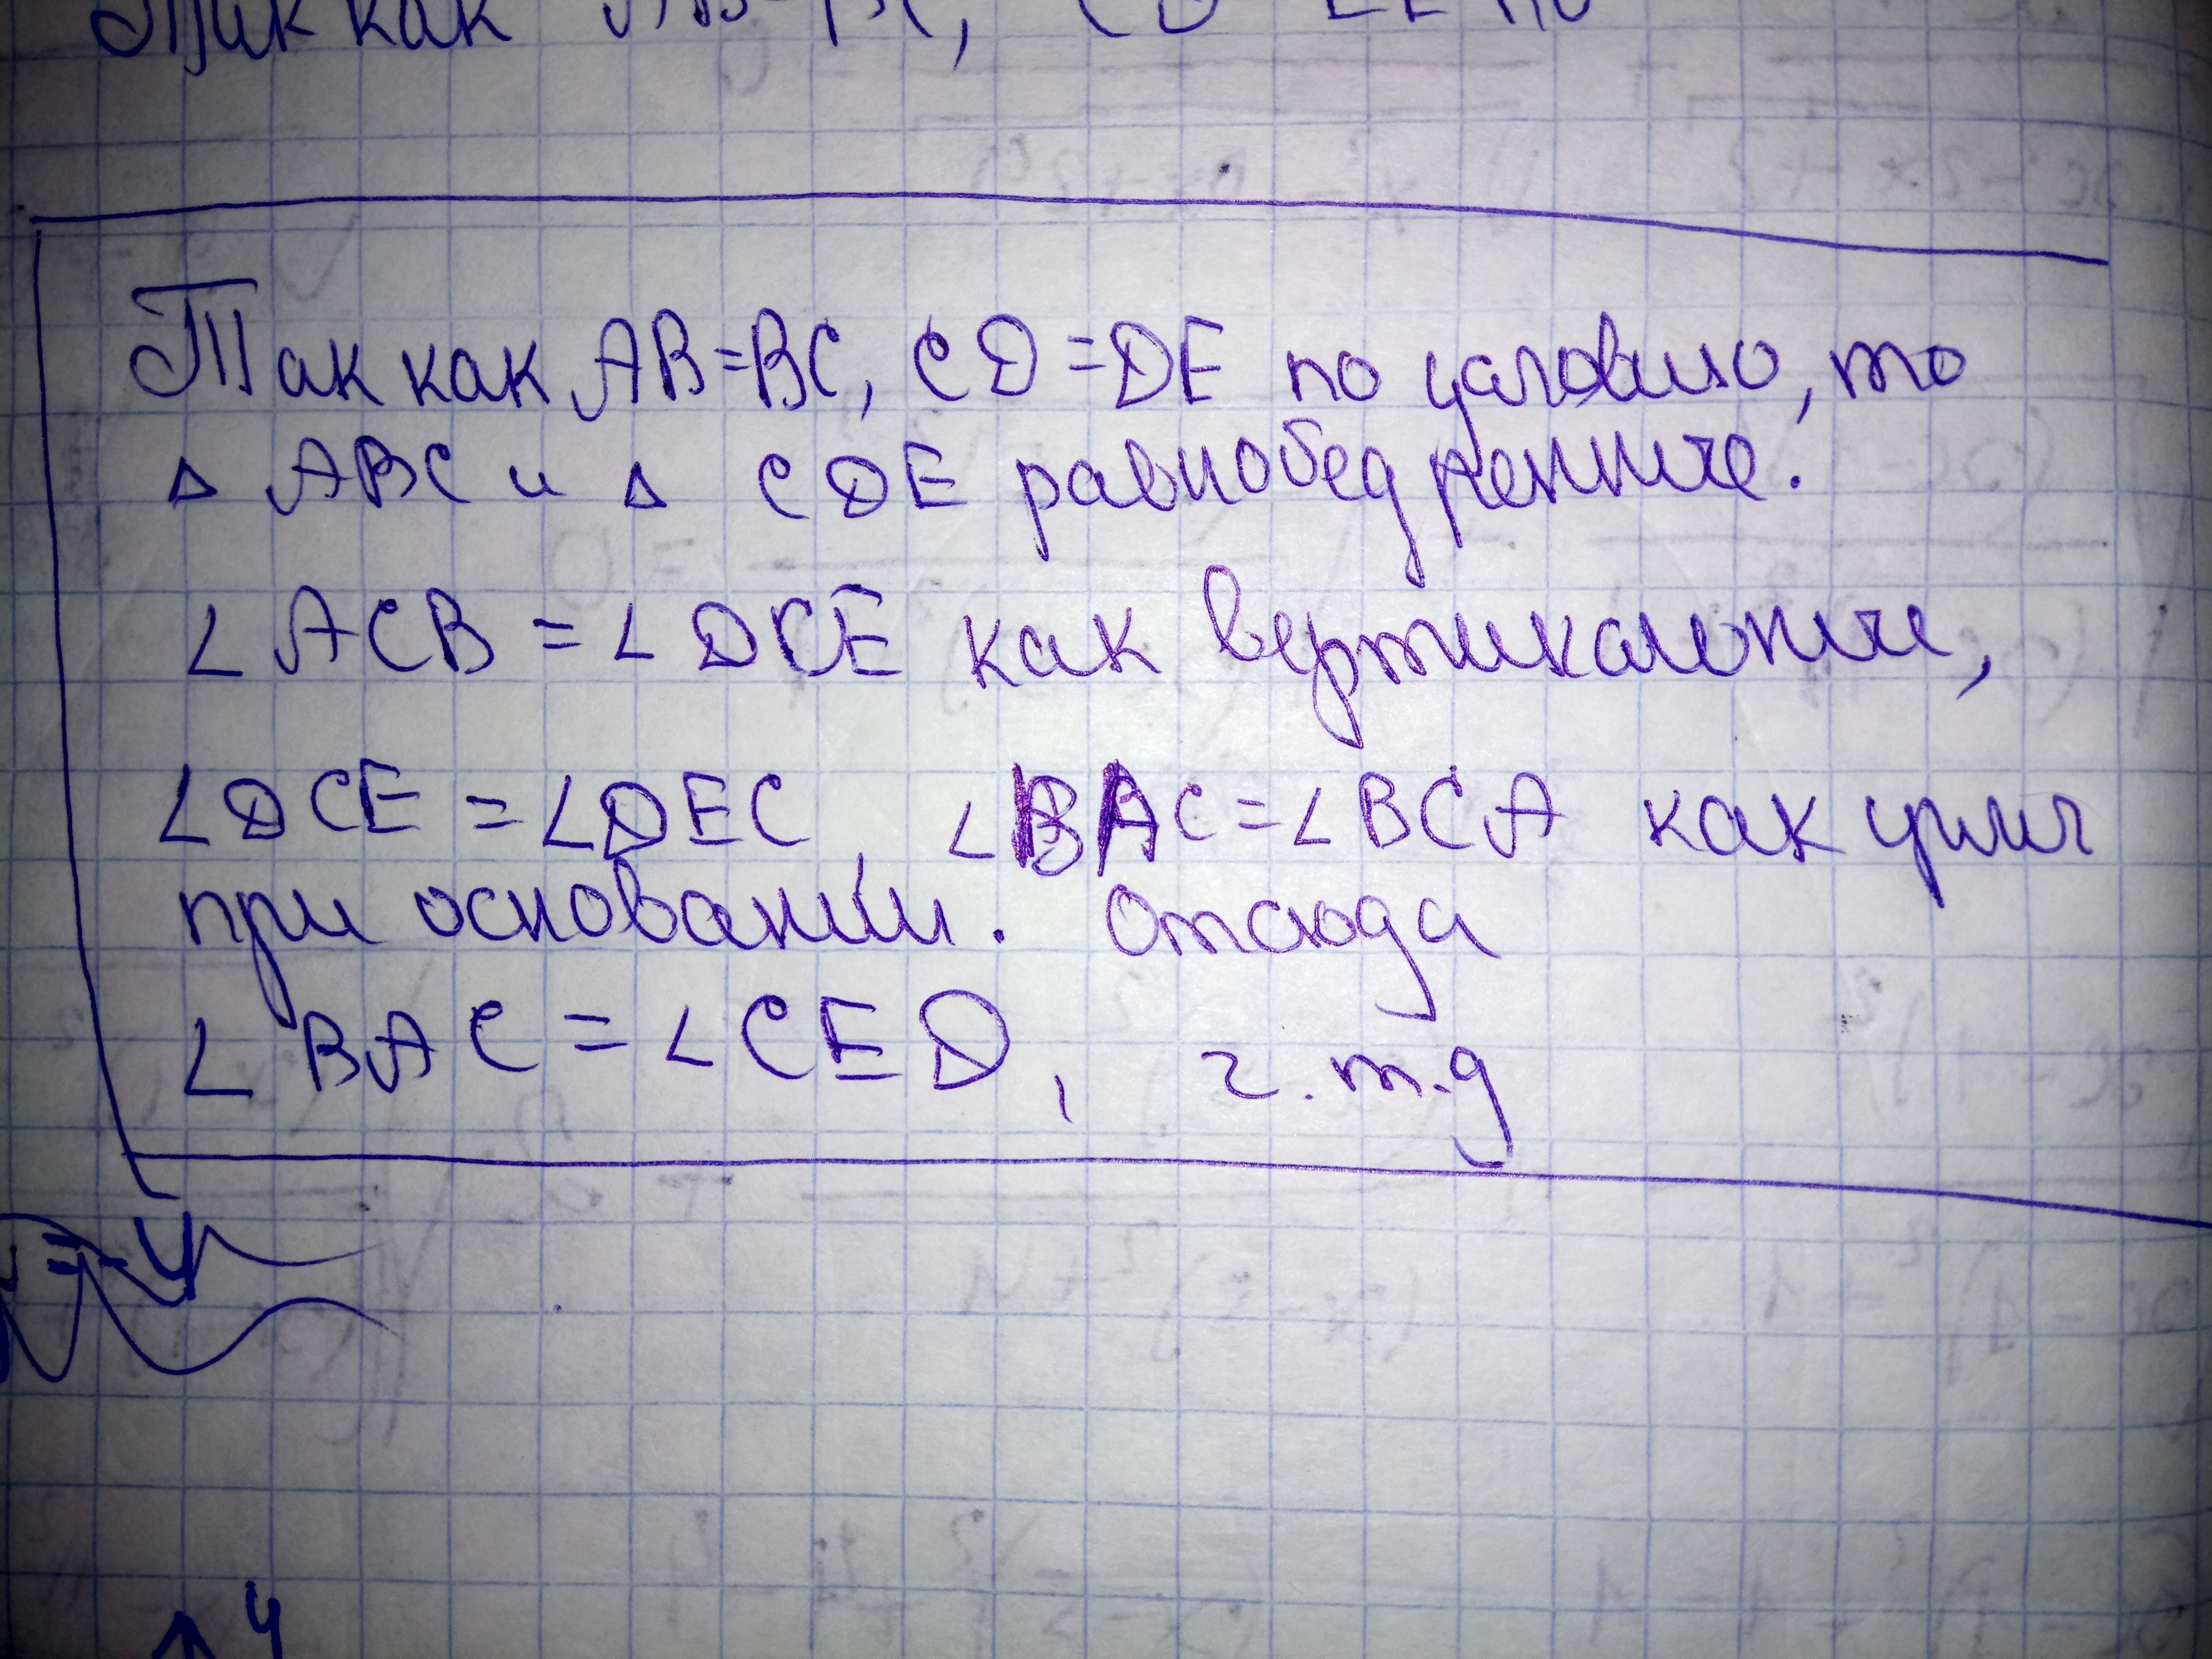 Так как
Так как AB=BC, CD=DE по условию, то
△ ABC и △ CDE равнобедренные.
∠ ACB = ∠ DCE как вертикальные,
∠DCE = ∠DEC, ∠BAC=∠BCA как углы
при основании. Отсюда
∠ BAC = ∠CED, ч.т.д
=-4
4